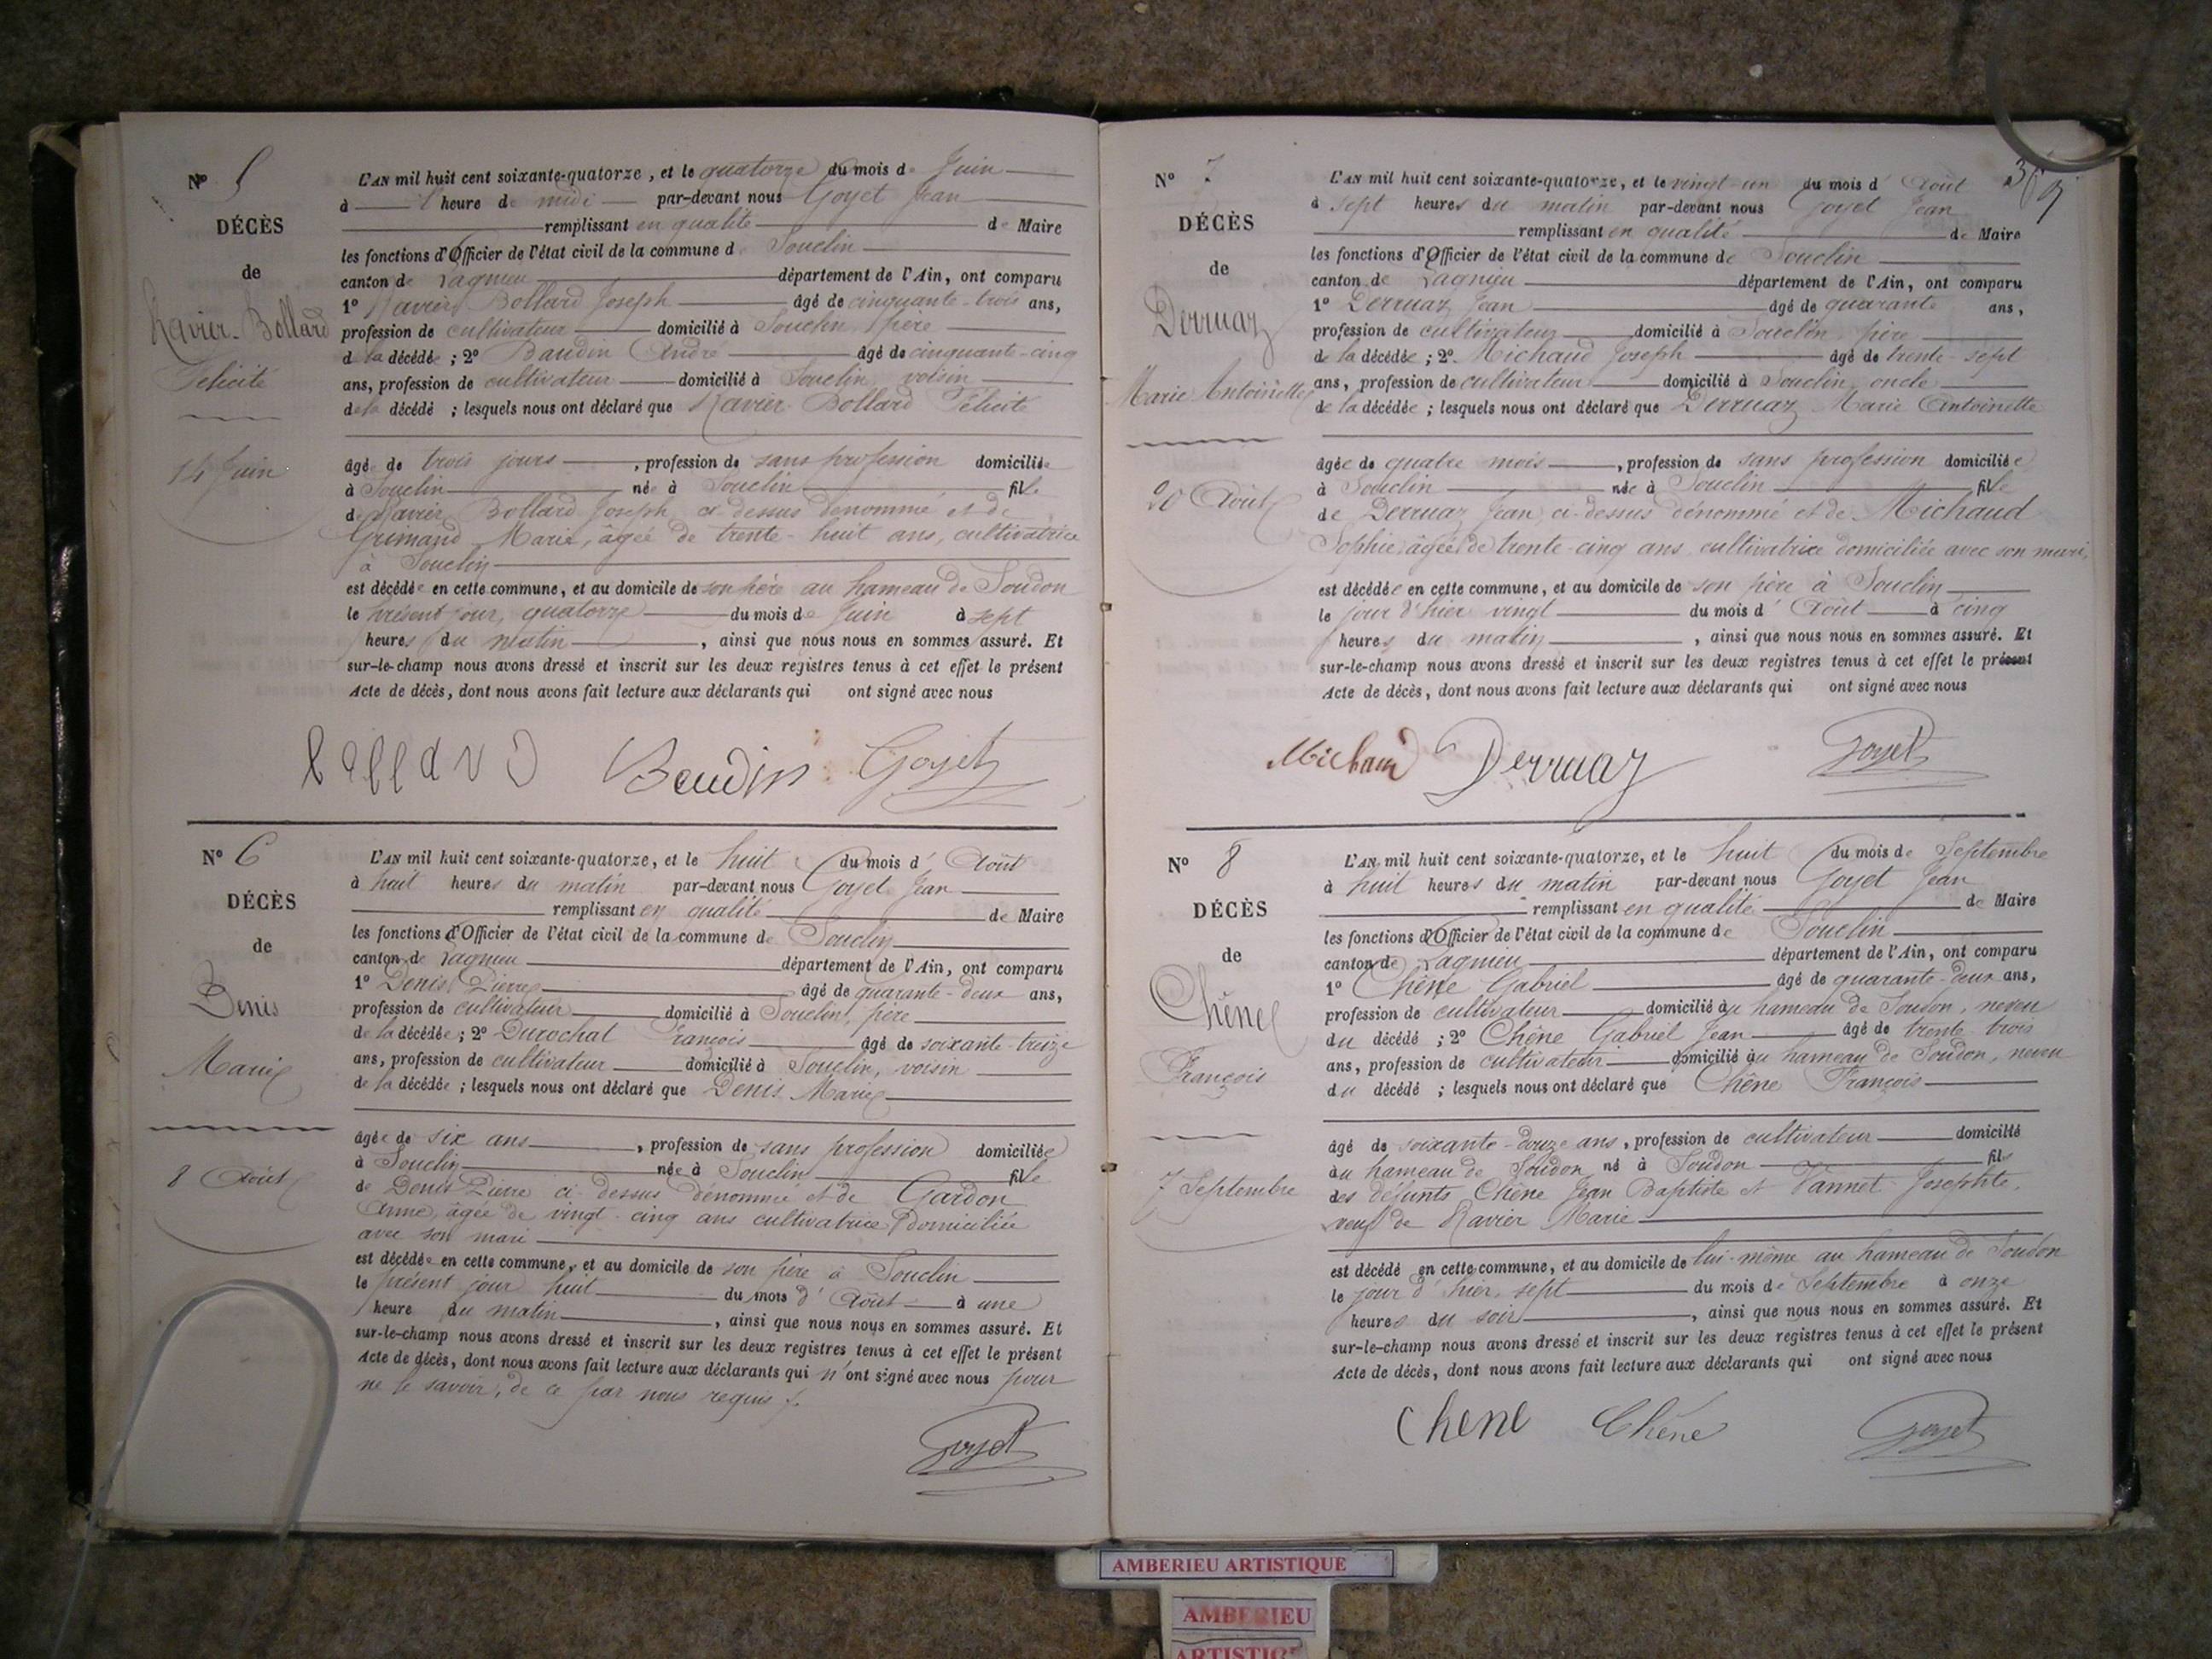 N° 5
DÉCÈS
de
Ravier-Bollard
Félicité
14 Juin
L'AN mil huit cent soixante-quatorze, et le quatorze du mois de Juin
à l' heure de midi par-devant nous Goyet Jean
remplissant en qualité de Maire
les fonctions d'Officier de l'état civil de la commune de Souclin
canton de Lagnieu département de l'Ain, ont comparu
1° Ravier Bollard Joseph âgé de cinquante-trois ans,
profession de cultivateur domicilié à Souclin, père
de la décédée ; 2° Baudin André âgé de cinquante-cinq
ans, profession de cultivateur domicilié à Souclin, voisin
de la décédé ; lesquels nous ont déclaré que Ravier Bollard Félicité
âgé de trois jours, profession de sans profession domiciliée
à Souclin née à Souclin fille
de Ravier Bollard Joseph ci-dessus dénommé et de
Grumand Marie, âgée de trente-huit ans, cultivatrice
à Souclin
est décédée en cette commune, et au domicile de son père au hameau de Soudon
le présent jour, quatorze du mois de Juin à sept
heures du matin, ainsi que nous nous en sommes assuré. Et
sur-le-champ nous avons dressé et inscrit sur les deux registres tenus à cet effet le présent
Acte de décès, dont nous avons fait lecture aux déclarants qui ont signé avec nous
Baudin Goyet
N° 6
DÉCÈS
de
Denis
Marie
8 Août
L'AN mil huit cent soixante-quatorze, et le huit du mois d' Août
à huit heures du matin par-devant nous Goyet Jean
remplissant en qualité de Maire
les fonctions d'Officier de l'état civil de la commune de Souclin
canton de Lagnieu département de l'Ain, ont comparu
1° Denis Pierre âgé de quarante-deux ans,
profession de cultivateur domicilié à Souclin, père
de la décédée ; 2° Durochat François âgé de soixante-treize
ans, profession de cultivateur domicilié à Souclin, voisin
de la décédée ; lesquels nous ont déclaré que Denis Marie
âgée de six ans, profession de sans profession domiciliée
à Souclin née à Souclin fille
de Denis Pierre ci-dessus dénommé et de Gardon
Anne, âgée de vingt-cinq ans cultivatrice domiciliée
avec son mari
est décédée en cette commune, et au domicile de son père à Souclin
le présent jour huit du mois d' Août à une
heure du matin, ainsi que nous nous en sommes assuré. Et
sur-le-champ nous avons dressé et inscrit sur les deux registres tenus à cet effet le présent
Acte de décès, dont nous avons fait lecture aux déclarants qui n'ont signé avec nous pour
ne le savoir, de ce par nous requis /.
Goyet
N° 7
DÉCÈS
de
Derruaz
Marie Antoinette
20 Août
L'AN mil huit cent soixante-quatorze, et le vingt-un du mois d' Août
à sept heures du matin par-devant nous Goyet Jean
remplissant en qualité de Maire
les fonctions d'Officier de l'état civil de la commune de Souclin
canton de Lagnieu département de l'Ain, ont comparu
1° Derruaz Jean âgé de quarante ans,
profession de cultivateur domicilié à Souclin père
de la décédée ; 2° Michaud Joseph âgé de trente-sept
ans, profession de cultivateur domicilié à Souclin, oncle
de la décédée ; lesquels nous ont déclaré que Derruaz Marie Antoinette
âgée de quatre mois, profession de sans profession domiciliée
à Souclin née à Souclin fille
de Derruaz Jean, ci-dessus dénommé et de Michaud
Sophie, âgée de trente-cinq ans cultivatrice domiciliée avec son mari,
est décédée en cette commune, et au domicile de son père à Souclin
le jour d'hier vingt du mois d' Août à cinq
heures du matin, ainsi que nous nous en sommes assuré. Et
sur-le-champ nous avons dressé et inscrit sur les deux registres tenus à cet effet le présent
Acte de décès, dont nous avons fait lecture aux déclarants qui ont signé avec nous
Michaud Derruaz Goyet
N° 8
DÉCÈS
de
Chêne
François
7 Septembre
L'AN mil huit cent soixante-quatorze, et le huit du mois de Septembre
à huit heures du matin par-devant nous Goyet Jean
remplissant en qualité de Maire
les fonctions d'Officier de l'état civil de la commune de Souclin
canton de Lagnieu département de l'Ain, ont comparu
1° Chêne Gabriel âgé de quarante-deux ans,
profession de cultivateur domicilié au hameau de Soudon, neveu
du décédé ; 2° Chêne Gabriel Jean âgé de trente-trois
ans, profession de cultivateur domicilié au hameau de Soudon, neveu
du décédé ; lesquels nous ont déclaré que Chêne François
âgé de soixante-douze ans, profession de cultivateur domicilié
au hameau de Soudon né à Soudon fils
des défunts Chêne Jean Baptiste et Vannet Josephte,
veuf de Ravier Marie
est décédé en cette commune, et au domicile de lui-même au hameau de Soudon
le jour d'hier, sept du mois de Septembre à onze
heures du soir, ainsi que nous nous en sommes assuré. Et
sur-le-champ nous avons dressé et inscrit sur les deux registres tenus à cet effet le présent
Acte de décès, dont nous avons fait lecture aux déclarants qui ont signé avec nous
Chene Chêne Goyet
AMBERIEU ARTISTIQUE
AMBERIEU